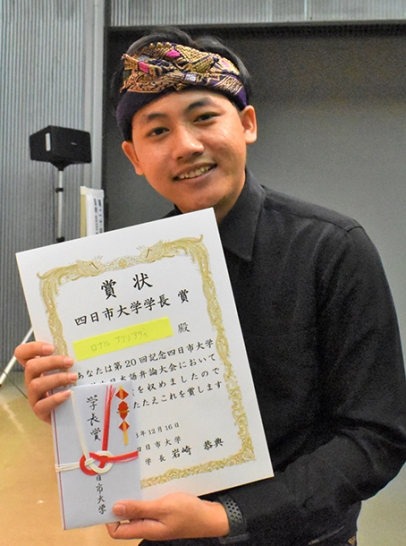 賞状
四日市大学学長 賞
殿
あなたは第20回記念四日市大学
日本語弁論大会において
を収めましたので
たたえこれを賞します
12月16
四日市大学
学長 岩崎 恭典
学長賞
四日市大学